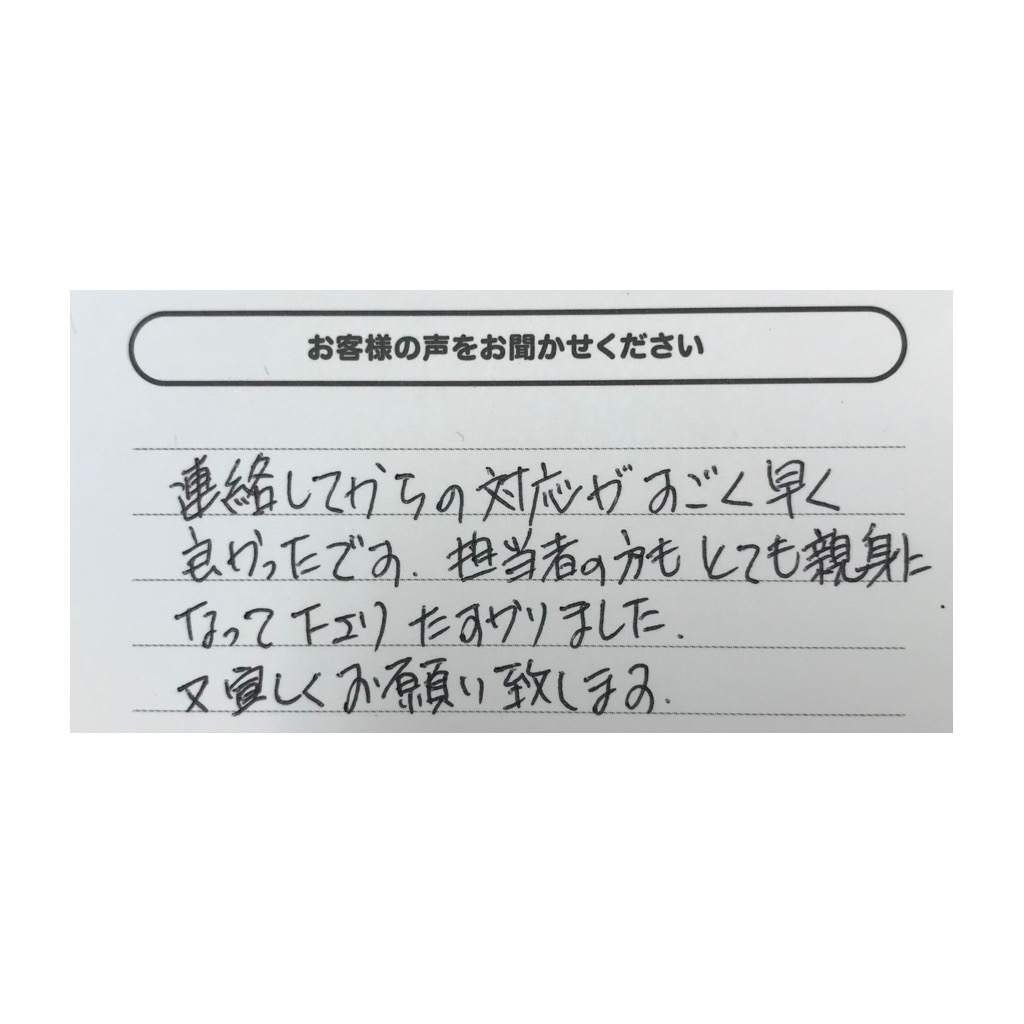 お客様の声をお聞かせください
連絡してからの対応がすごく早く
良かったです. 担当者の方もとても親身に
なって下さり たすかりました.
又宜しくお願い致します.